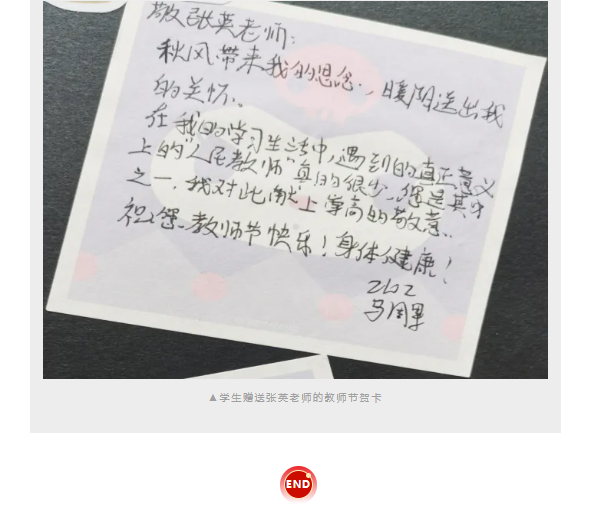 敬爱张英老师:
秋风带来我的思念.,暖阳送出我
的关怀..
在我的学习生活中,遇到的真正意义
上的"人民教师"真的很少,您是其中
之一,我对此献上崇高的敬意..
祝您.教师节快乐!身体健康!
马国
▲学生赠送张英老师的教师节贺卡
END